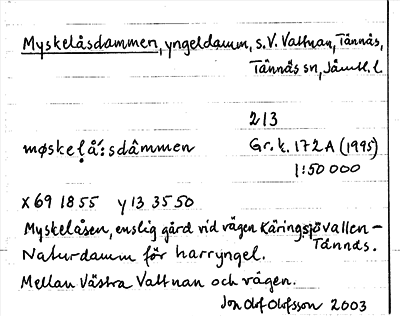 Myskelåsdammen, yngeldamm, s.V. Valtnan, Tännäs,
Tännäs sn, Jämtl. l
213
møskelå:sdåmmen Gr.k. 172A (1995)
1:50 000
x 69 18 55 y 13 35 50
Myskelåsen, enslig gård vid vägen Käringsjövallen –
Tännäs.
Naturdamm för harryngel.
Mellan Västra Valtnan och vägen.
Jon Olof Olofsson 2003